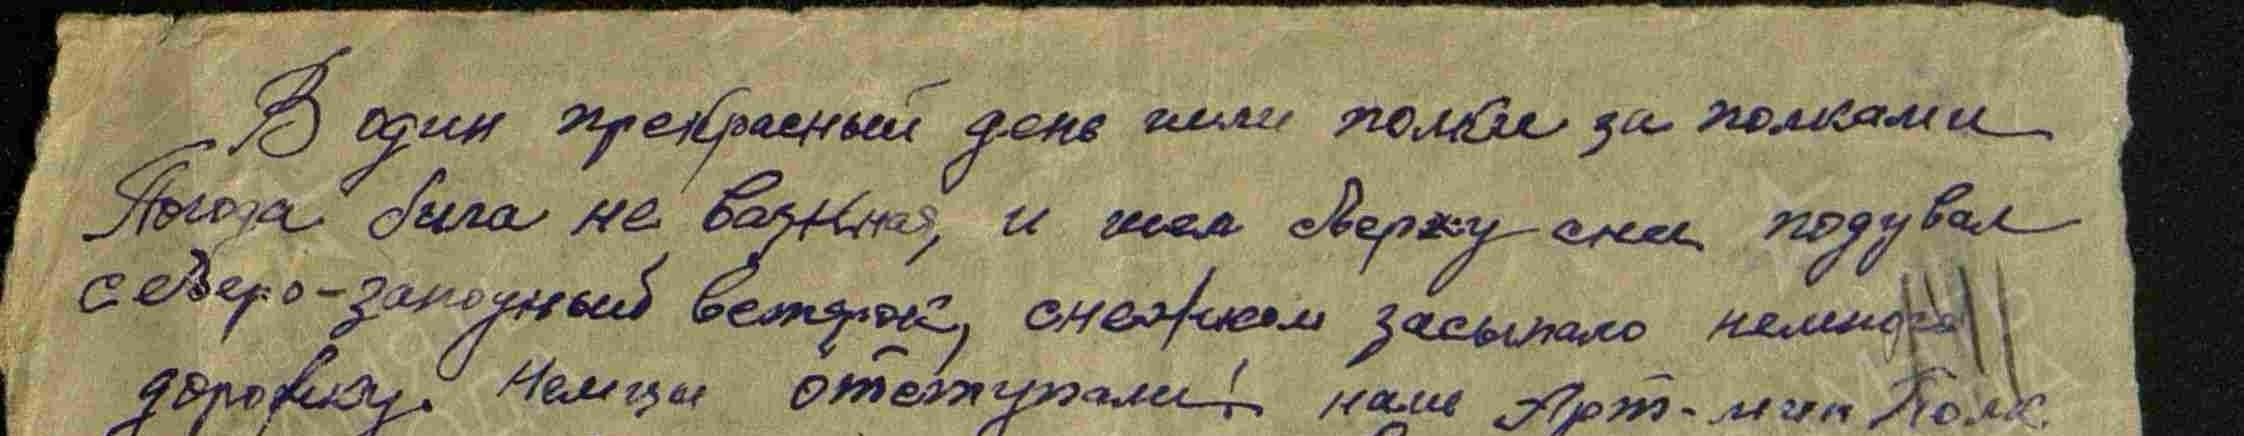 В один прекрасный день шли полки за полками
Погода была не важная, и шел сверху снег подувал
северо-западный ветярок, снежком засыпало немного
дорожку. Немцы отступали! наш Арт-мин Полк